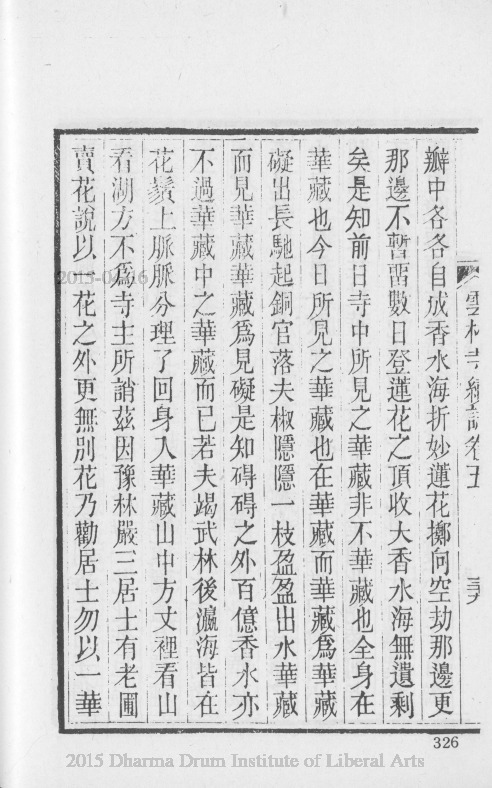 雲林寺續誌卷五
瓣中各各自成香水海折妙蓮花擲向空劫那邊更
那邊不暫畱數日登蓮花之頂收大香水海無遺剩
矣是知前日寺中所見之華藏非不華藏也全身在
華藏也今日所見之華藏也在華藏而華藏爲華藏
礙出長馳起銅官落夫椒隱隱一枝盈盈出水華藏
而見華藏華藏爲見礙是知碍碍之外百億香水亦
不過華藏中之華藏而已若夫蹋武林後瀛海皆在
花鬚上脈脈分理了回身入華藏山中方丈裡看山
看湖方不爲寺主所誚茲因豫林嚴三居士有老圃
賣花說以一花之外更無別花乃勸居士勿以一華
326
2015 Dharma Drum Institute of Liberal Arts